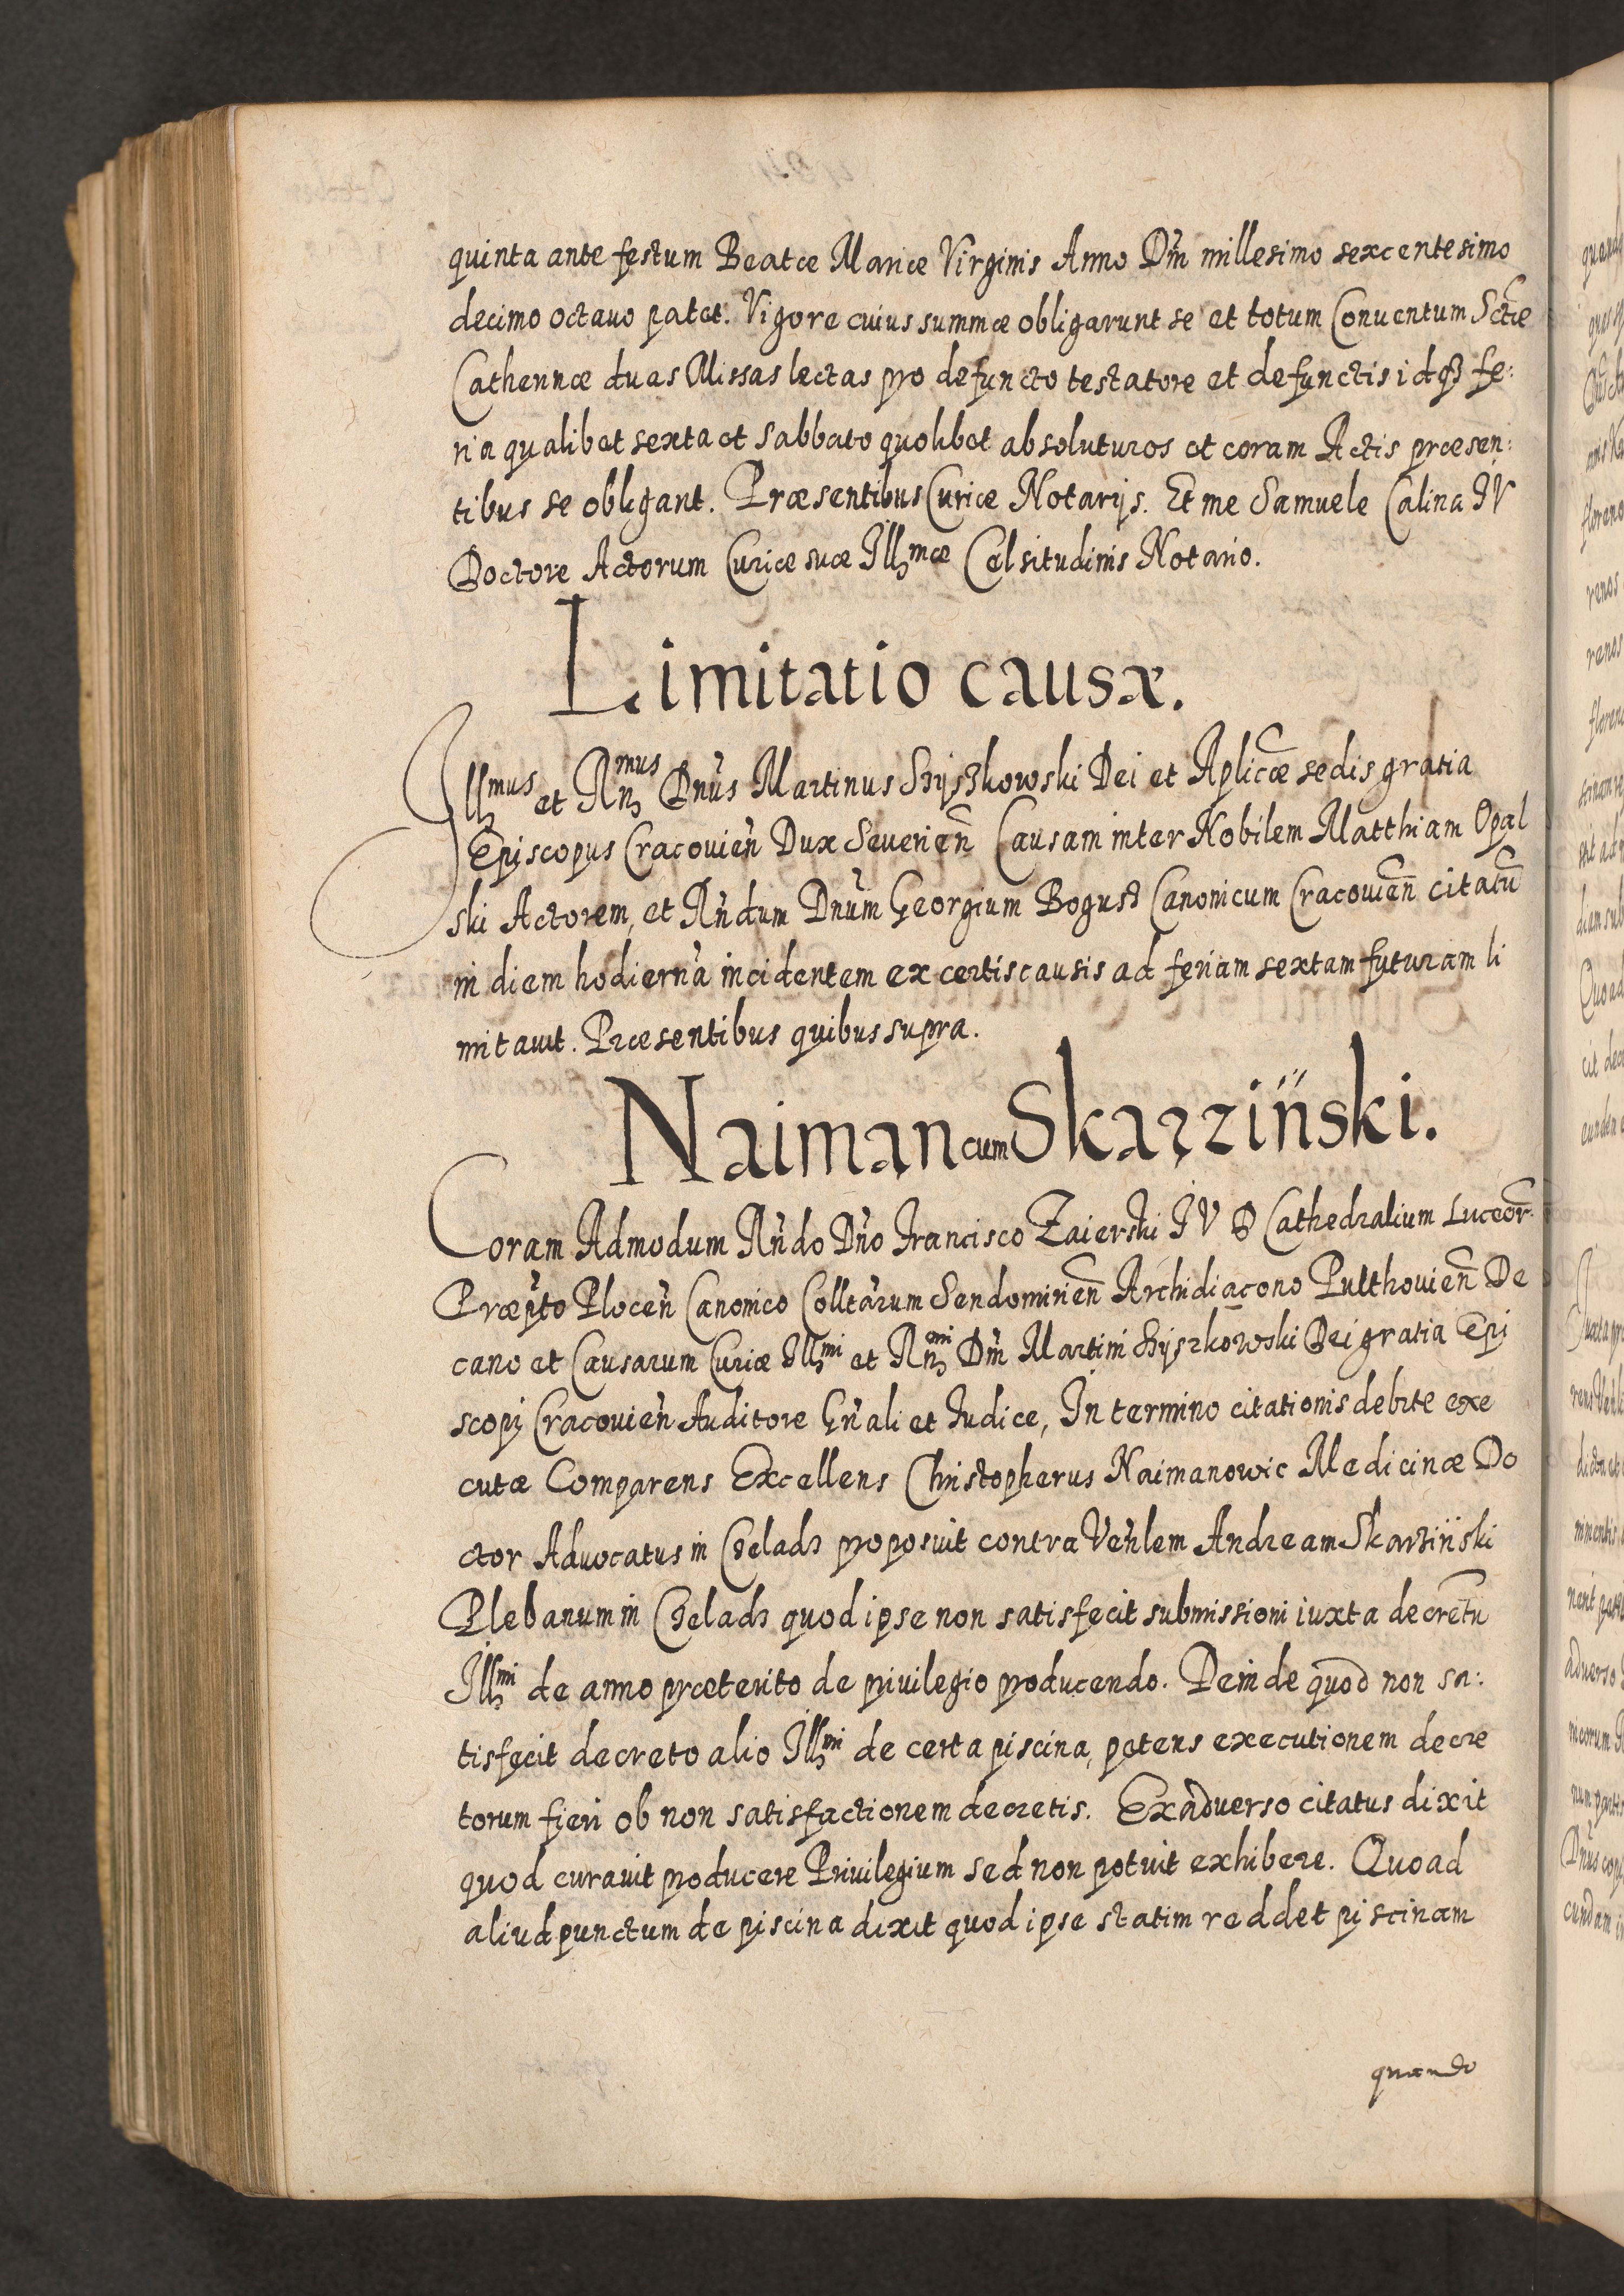 quinta ante festum Beatæ Mariæ Virginis Anno Dñi millesimo sexcentesimo
decimo octauo patet. Vigore cuius summæ obligarunt se et totum Conuentum Sctæ
Catherinæ duas Missas lectas pro defuncto testatore et defunctis idqȝ fe:
ria qualibet sexta et Sabbato quolibet absoluturos et coram Actis præsen:
tibus se obligant. Præsentibus Curiæ Notarijs. Et me Samuele Calina IV
Doctore Actorum Curiæ suæ Illmæ Celsitudinis Notario.
Limitatio causæ.
Illmus et Rnmus Dnus Martinus Szyszkowski Dei et Aplicæ sedis gratia
Episcopus Cracouien̄ Dux Seuerien̄ Causam inter Nobilem Matthiam Opal
ski Actorem, et Rndum Dnum Georgium Bogusz Canonicum Cracouien̄ citatū
in diem hodierna incidentem ex certis causis ad feriam sextam futuram li
mitauit. Præsentibus quibus supra.
Naiman cum Skarziński.
Coram Admodum Rndo Dno Francisco Zaierski I V D Cathedralium Luceor
Præpto Plocen̄ Canonico Colltarum Sendomirien̄ Archidiacono Pulthouien̄ De
cano et Causarum Curiæ Illmi et Rnmi Dñi Martini Szyszkowski Dei gratia Epi
scopi Cracouien̄ Auditore Gnali et Iudice, In termino citationis debite exe
cutæ Comparens Excellens Christopherus Naimanowic Medicinæ Do
ctor Aduocatus in Czeladz proposuit contra Venlem Andream Skarziński
Plebanum in Czeladz quod ipse non satisfecit submissioni iuxta decretū
Illmi de anno præterito de priuilegio producendo. Deinde quod non sa:
tisfecit decreto alio Illmi de certa piscina, petens executionem decre
torum fieri ob non satisfactionem decretis. Exaduerso citatus dixit
quod curauit producere Priuilegium sed non potuit exhibere. Quoad
aliud punctum de piscina dixit quod ipse statim reddet piscinam
quando